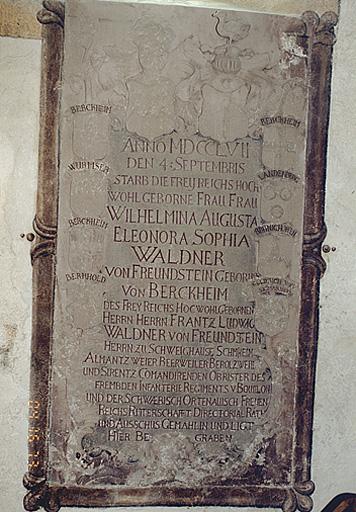 BERCKHEIM
BERCKHEIM
WURMSER
BERCKHEIM
BERNHOLD
ANNO MDCCLVII
DEN 4: SEPTEMBRIS
STARB DIE FREY REICHS HOCH
WOHL GEBORNE FRAU FRAU
WILHELMINA AUGUSTA
ELEONORA SOPHIA
WALDNER
VON FREUNDSTEIN GEBORNE
VON BERCKHEIM
DES FREY REICHS HOCWOHLGEBORNEN
HERRN HERRN FRANTZ LUDWIG
WALDNER VON FREUNDSTEIN
HERRN ZU SCHWEIGHAUSE, SCHMIEHEIM
ALMANTZ WEIER BEERWEILER BEROLZWEIL
UND SIRENTZ COMANDIRENDEN OBRISTER DES
FREMBDEN INFANTERIE REGIMENTS V BOUILLON
UND DER SCHWÆBISCH ORTENAUISCH FREYEN
REICHS RITTERSCHAFFT DIRECTORIAL RATH
UND AUSSCHUS GEMAHLIN UND LIGT
HIER BE GRABEN